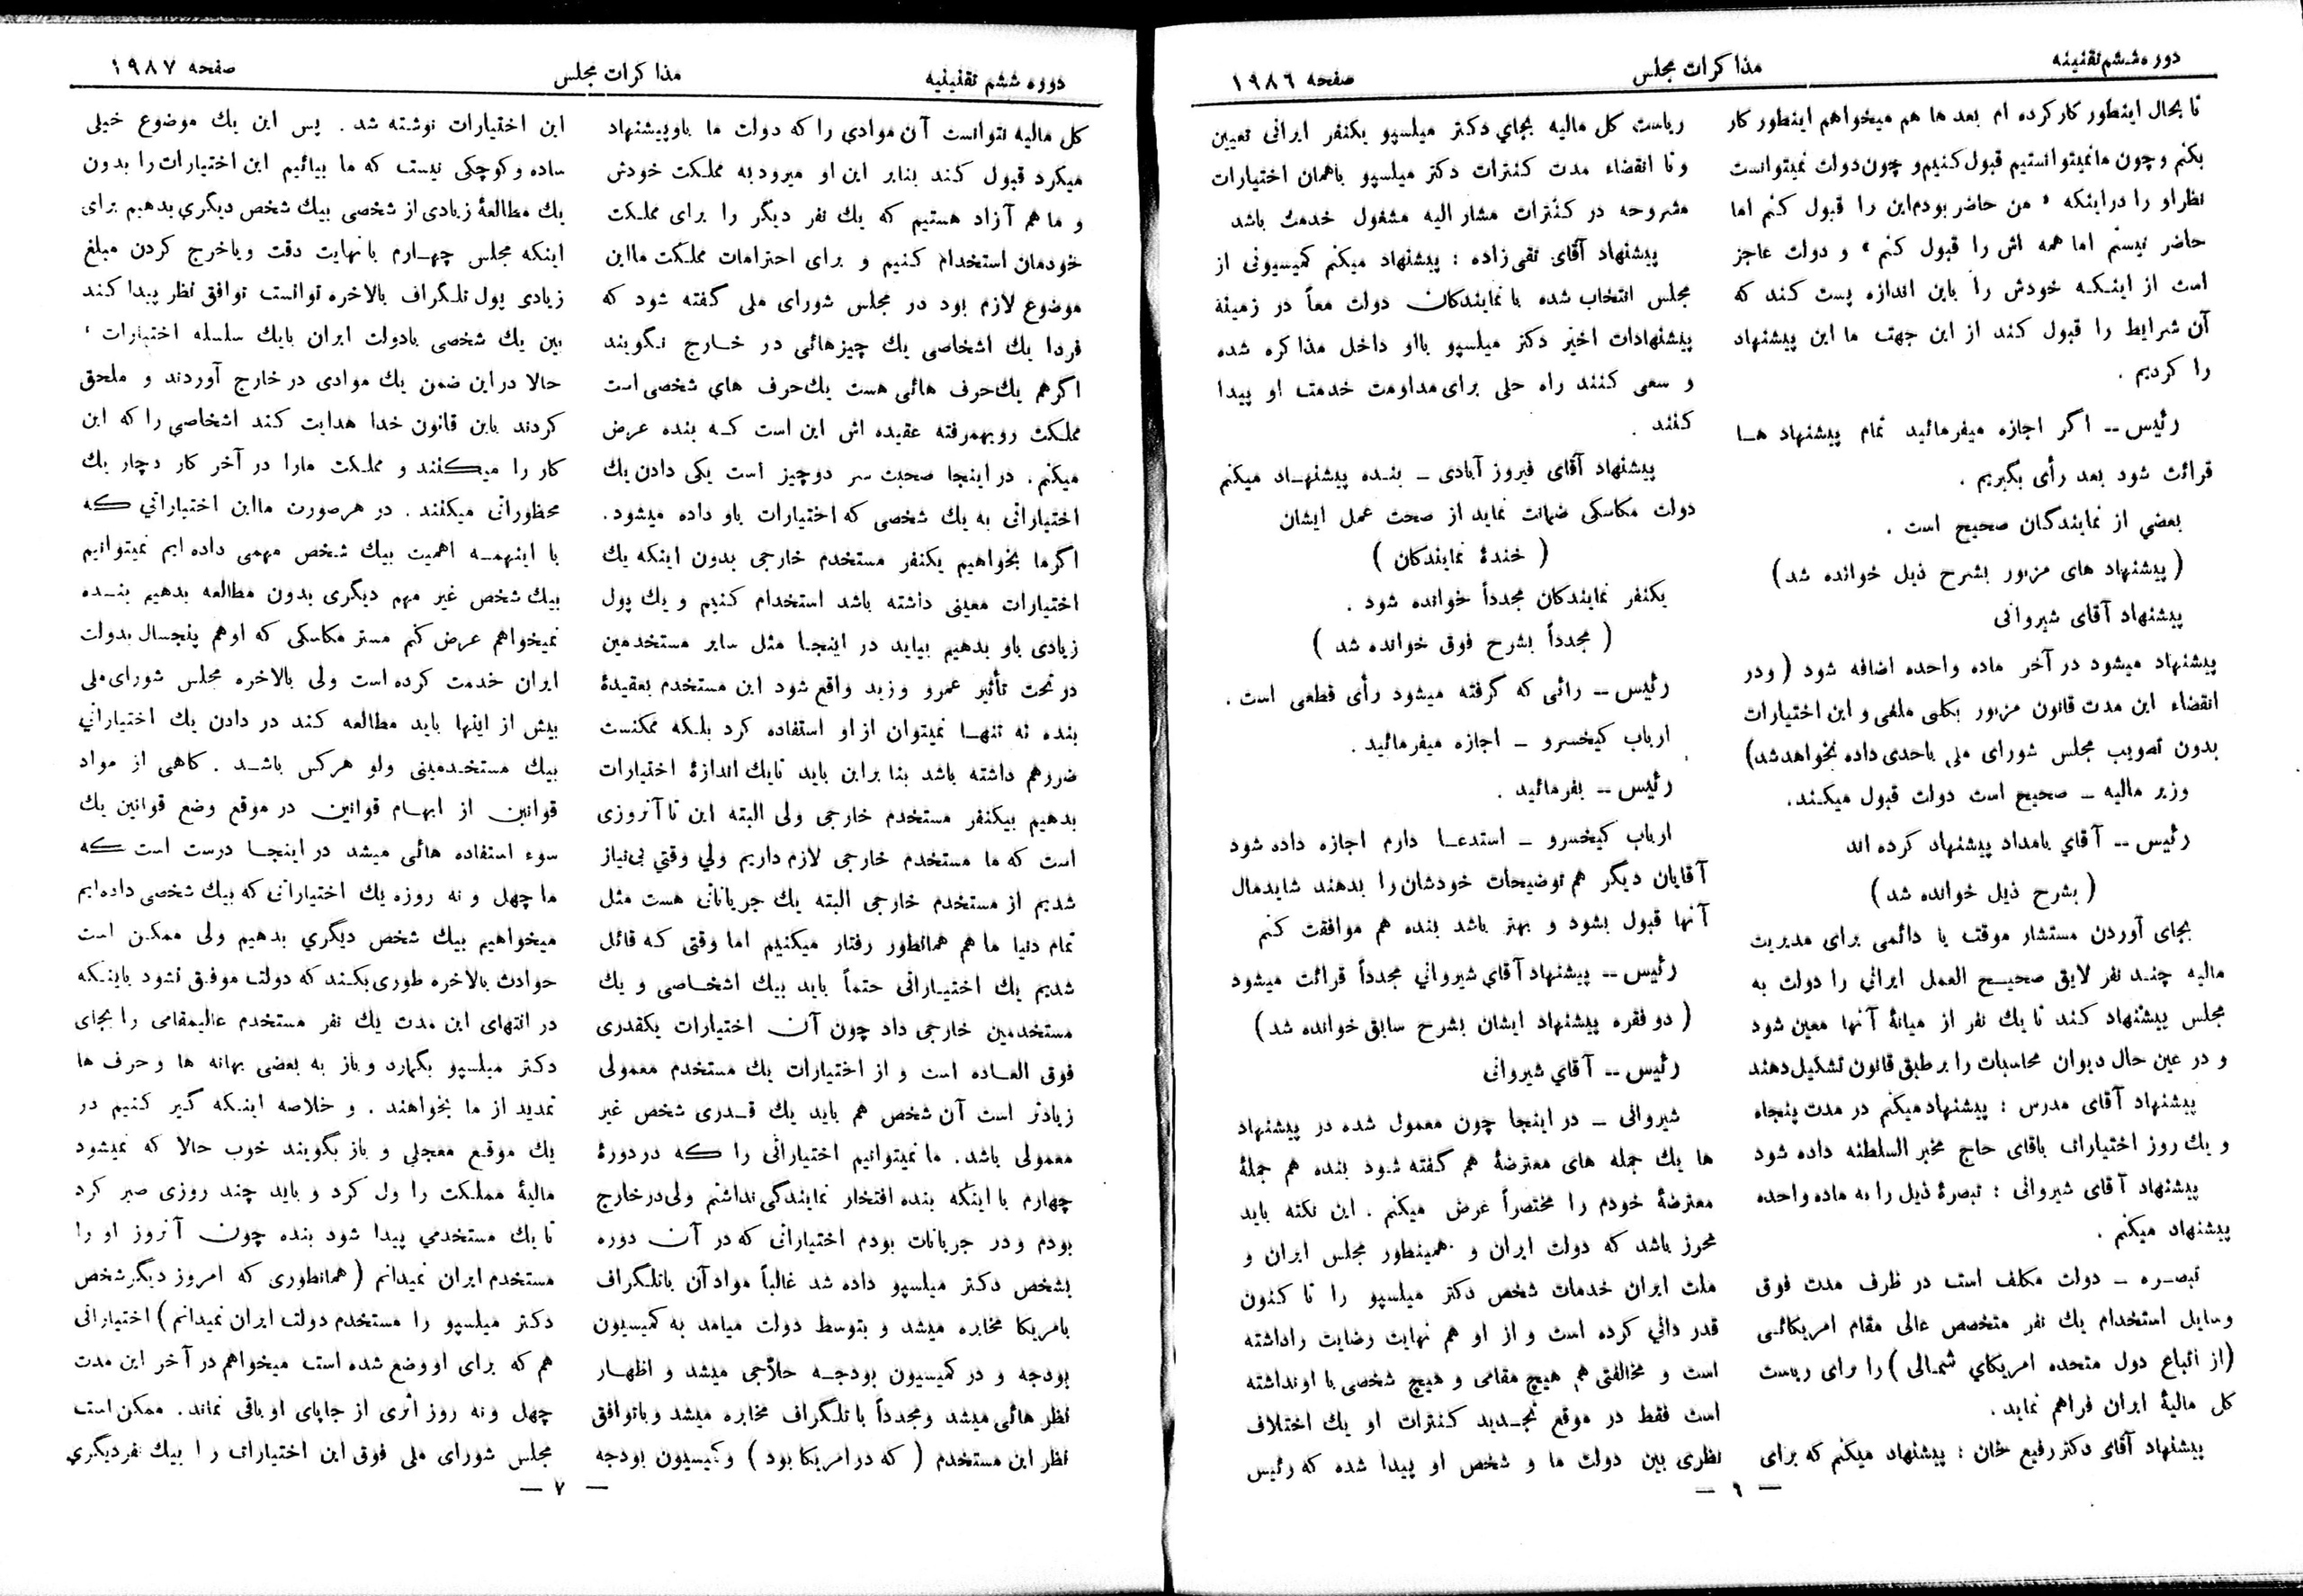 دوره ششم تقنینیه
مذاکرات مجلس
صفحه ۱۹۸۶
تا بحال اینطور کار کرده ام بعد ها هم میخواهم اینطور کار
بکنم و چون ما نمیتوانستیم قبول کنیم و چون دولت نمیتوانست
نظر او را در اینکه « من حاضر بودم این را قبول کنم اما
حاضر نیستم اما همه اش را قبول کنم » و دولت عاجز
است از اینکه خودش را باین اندازه پست کند که
آن شرایط را قبول کند از این جهت ما این پیشنهاد
را کردیم .
رئیس -- اگر اجازه میفرمائید تمام پیشنهاد ها
قرائت شود بعد رأی بگیریم .
بعضي از نمایندگان صحیح است .
( پیشنهاد های مزبور بشرح ذیل خوانده شد )
پیشنهاد آقای شیروانی
پیشنهاد میشود در آخر ماده واحده اضافه شود ( و در
انقضاء این مدت قانون مزبور بکلی ملغی و این اختیارات
بدون تصویب مجلس شورای ملی باحدی داده نخواهد شد )
وزیر مالیه – صحیح است دولت قبول میکند .
رئیس -- آقاي بامداد پیشنهاد کرده اند
( بشرح ذیل خوانده شد )
بجای آوردن مستشار موقت یا دائمی برای مدیریت
مالیه چند نفر لایق صحیح العمل ایرانی را دولت به
مجلس پیشنهاد کند تا یك نفر از میانهٔ آنها معین شود
و در عین حال دیوان محاسبات را بر طبق قانون تشکیل دهند
پیشنهاد آقای مدرس : پیشنهاد میکنم در مدت پنجاه
و یك روز اختیارات باقای حاج مخبر السلطنه داده شود
پیشنهاد آقای شیروانی : تبصرهٔ ذیل را به ماده واحده
پیشنهاد میکنم .
تبصره – دولت مکلف است در ظرف مدت فوق
وسایل استخدام یك نفر متخصص عالی مقام امریکائی
( از اتباع دول متحده امریکاي شمالی ) را برای ریاست
کل مالیهٔ ایران فراهم نماید .
پیشنهاد آقای دکتر رفیع خان : پیشنهاد میکنم که برای
ریاست کل مالیه بجاي دکتر میلسپو یکنفر ایرانی تعیین
و تا انقضاء مدت کنترات دکتر میلسپو باهمان اختیارات
مشروحه در کنترات مشار الیه مشغول خدمت باشد
پیشنهاد آقای تقی زاده : پیشنهاد میکنم کمیسیونی از
مجلس انتخاب شده با نمایندگان دولت معاً در زمینهٔ
پیشنهادات اخیر دکتر میلسپو بااو داخل مذاکره شده
و سعی کنند راه حلی برای مداومت خدمت او پیدا
کنند .
پیشنهاد آقای فیروز آبادی – بنده پیشنهاد میکنم
دولت مکاسکی ضمانت نماید از صحت عمل ایشان
( خندهٔ نمایندگان )
یکنفر نمایندگان مجدداً خوانده شود .
( مجدداً بشرح فوق خوانده شد )
رئیس -- رائی که گرفته میشود رأی قطعی است .
ارباب کیخسرو – اجازه میفرمائید .
رئیس -- بفرمائید .
ارباب کیخسرو – استدعا دارم اجازه داده شود
آقایان دیگر هم توضیحات خودشان را بدهند شاید مال
آنها قبول بشود و بهتر باشد بنده هم موافقت کنم
رئیس -- پیشنهاد آقاي شیرواني مجدداً قرائت میشود
( دو فقره پیشنهاد ایشان بشرح سابق خوانده شد )
رئیس -- آقاي شیروانی
شیروانی – در اینجا چون معمول شده در پیشنهاد
ها یك جمله های معترضهٔ هم گفته شود بنده هم جملهٔ
معترضهٔ خودم را مختصراً عرض میکنم . این نکته باید
محرز باشد که دولت ایران و همینطور مجلس ایران و
ملت ایران خدمات شخص دکتر میلسپو را تا کنون
قدر داني کرده است و از او هم نهایت رضایت را داشته
است و مخالفتی هم هیچ مقامی و هیچ شخصی با او نداشته
است فقط در موقع تجدید کنترات او یك اختلاف
نظری بین دولت ما و شخص او پیدا شده که رئیس
— ٦ —
دوره ششم تقنینیه
مذاکرات مجلس
صفحه ۱۹۸۷
کل مالیه نتوانست آن موادی را که دولت ما باو پیشنهاد
میکرد قبول کند بنابر این او میرود به مملکت خودش
و ما هم آزاد هستیم که یك نفر دیگر را برای مملکت
خودمان استخدام کنیم و برای احترامات مملکت ما این
موضوع لازم بود در مجلس شورای ملی گفته شود که
فردا یك اشخاصی یك چیزهائی در خارج نگویند
اگر هم یك حرف هائی هست یك حرف هاي شخصی است
مملکت رویهمرفته عقیده اش این است که بنده عرض
میکنم . در اینجا صحبت سر دو چیز است یکی دادن یك
اختیاراتی به یك شخصی که اختیارات باو داده میشود .
اگر ما بخواهیم یکنفر مستخدم خارجی بدون اینکه یك
اختیارات معینی داشته باشد استخدام کنیم و یك پول
زیادی باو بدهیم بیاید در اینجا مثل سایر مستخدمین
در تحت تأثیر عمرو و زید واقع شود این مستخدم بعقیدهٔ
بنده نه تنها نمیتوان از او استفاده کرد بلکه ممکنست
ضرر هم داشته باشد بنا بر این باید تا یك اندازهٔ اختیارات
بدهیم بیکنفر مستخدم خارجی ولی البته این تا آنروزی
است که ما مستخدم خارجی لازم داریم ولي وقتي بی نیاز
شدیم از مستخدم خارجی البته یك جریاناتی هست مثل
تمام دنیا ما هم همانطور رفتار میکنیم اما وقتی که قائل
شدیم یك اختیاراتی حتماً باید بیك اشخاصی و یك
مستخدمین خارجی داد چون آن اختیارات یکقدری
فوق العاده است و از اختیارات یك مستخدم معمولی
زیادتر است آن شخص هم باید یك قدری شخص غیر
معمولی باشد . ما نمیتوانیم اختیاراتی را که در دورهٔ
چهارم با اینکه بنده افتخار نمایندگی نداشتم ولی در خارج
بودم و در جریانات بودم اختیاراتی که در آن دوره
بشخص دکتر میلسپو داده شد غالباً مواد آن با تلگراف
بامریکا مخابره میشد و بتوسط دولت میامد به کمیسیون
بودجه و در کمیسیون بودجه حلاجی میشد و اظهار
نظر هائی میشد و مجدداً با تلگراف مخابره میشد و با توافق
نظر این مستخدم ( که در امریکا بود ) و کمیسیون بودجه
این اختیارات نوشته شد . پس این یك موضوع خیلی
ساده و کوچکی نیست که ما بیائیم این اختیارات را بدون
یك مطالعهٔ زیادی از شخصی بیك شخص دیگري بدهیم برای
اینکه مجلس چهارم با نهایت دقت و با خرج کردن مبلغ
زیادی پول تلگراف بالاخره توانست توافق نظر پیدا کند
بین یك شخصی با دولت ایران با یك سلسله اختیارات ،
حالا در این ضمن یك موادی در خارج آوردند و ملحق
کردند باین قانون خدا هدایت کند اشخاصی را که این
کار را میکنند و مملکت مارا در آخر کار دچار یك
محظوراتی میکنند . در هر صورت ما این اختیاراتي که
با اینهمه اهمیت بیك شخص مهمی داده ایم نمیتوانیم
بیك شخص غیر مهم دیگری بدون مطالعه بدهیم بنده
نمیخواهم عرض کنم مستر مکاسکی که او هم پنجسال بدولت
ایران خدمت کرده است ولی بالاخره مجلس شورای ملی
بیش از اینها باید مطالعه کند در دادن یك اختیاراتي
بیك مستخدمینی ولو هر کس باشد . کاهی از مواد
قوانین از ابهام قوانین در موقع وضع قوانین یك
سوء استفاده هائی میشد در اینجا درست است که
ما چهل و نه روزه یك اختیاراتی که بیك شخصی داده ایم
میخواهیم بیك شخص دیگري بدهیم ولی ممکن است
حوادث بالاخره طوری بکند که دولت موفق نشود باینکه
در انتهای این مدت یك نفر مستخدم عالیمقامی را بجای
دکتر میلسپو بگمارد و باز به بعضی بهانه ها و حرف ها
تمدید از ما بخواهند . و خلاصه اینکه گیر کنیم در
یك موقع معجلی و باز بگویند خوب حالا که نمیشود
مالیهٔ مملکت را ول کرد و باید چند روزی صبر کرد
تا یك مستخدمي پیدا شود بنده چون آنروز او را
مستخدم ایران نمیدانم ( همانطوری که امروز دیگر شخص
دکتر میلسپو را مستخدم دولت ایران نمیدانم ) اختیاراتی
هم که برای او وضع شده است میخواهم در آخر این مدت
چهل و نه روز اثری از جاپای او باقی نماند . ممکن است
مجلس شورای ملی فوق این اختیارات را بیك نفر دیگری
— ۷ —